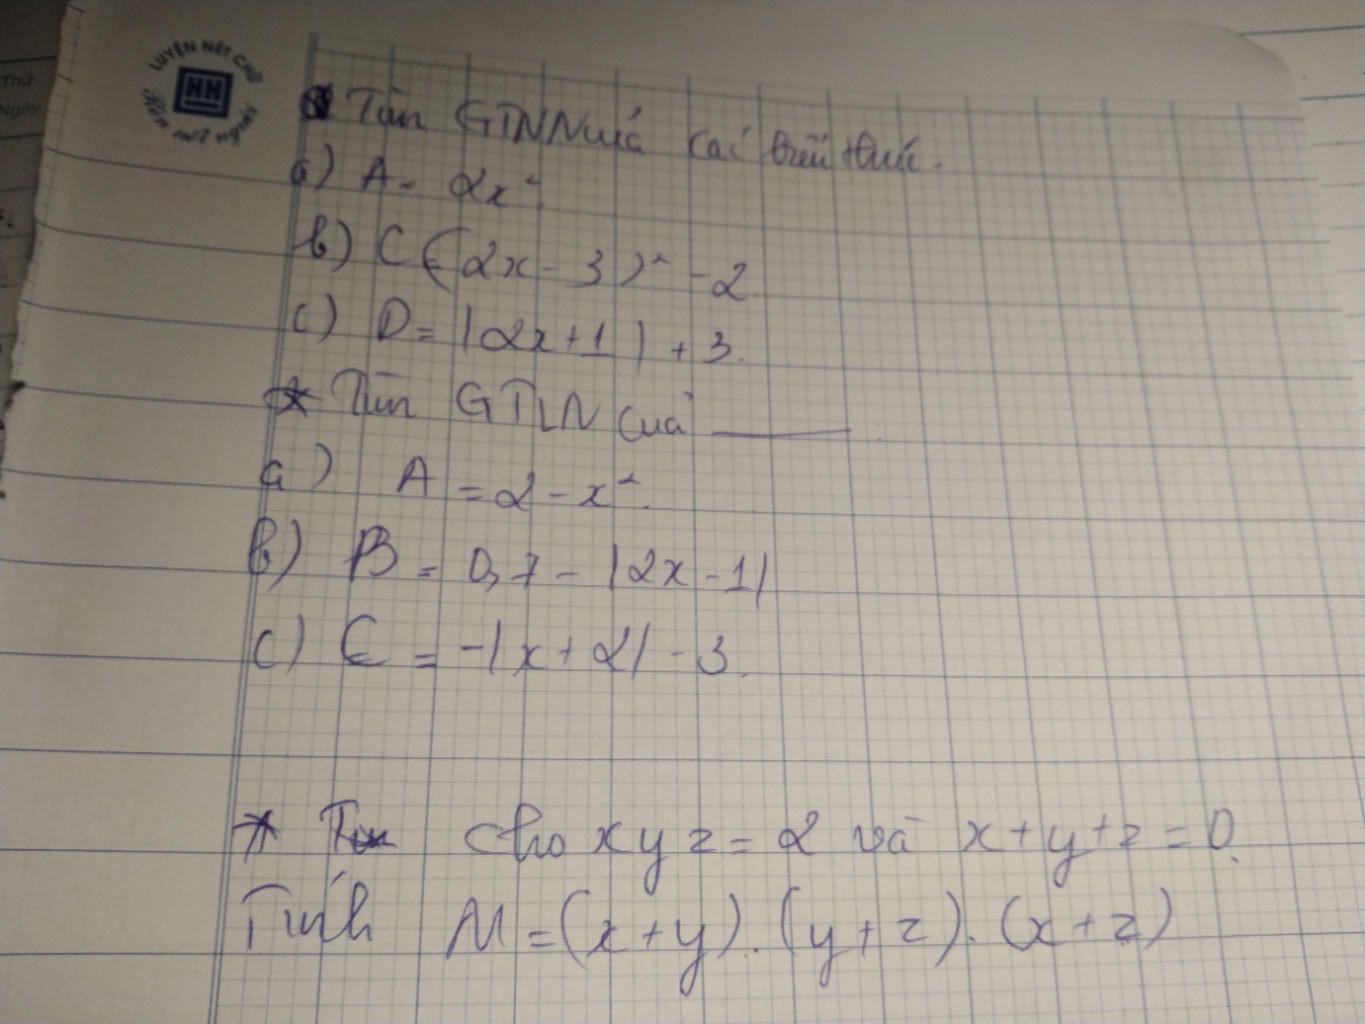 LUYỆN NÉT CHỮ
HH
Rèn nết người
Thứ
Ngày
Tìm GTNN của các biểu thức.
a) A = 2x²
b) C = (2x - 3)² - 2
c) D = |2x+1| + 3.
* Tìm GTLN của
a) A = 2 - x².
b) B = 0,7 - |2x - 1|
c) C = -|x + 2| - 3.
* Cho xyz = 2 và x+y+z = 0.
Tính M = (x+y).(y+z).(x+z)